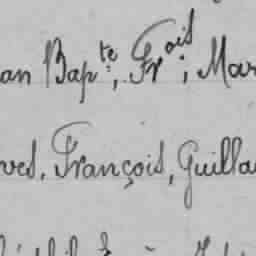 an Bapte, Frois; Mar
ves, François, Guilla